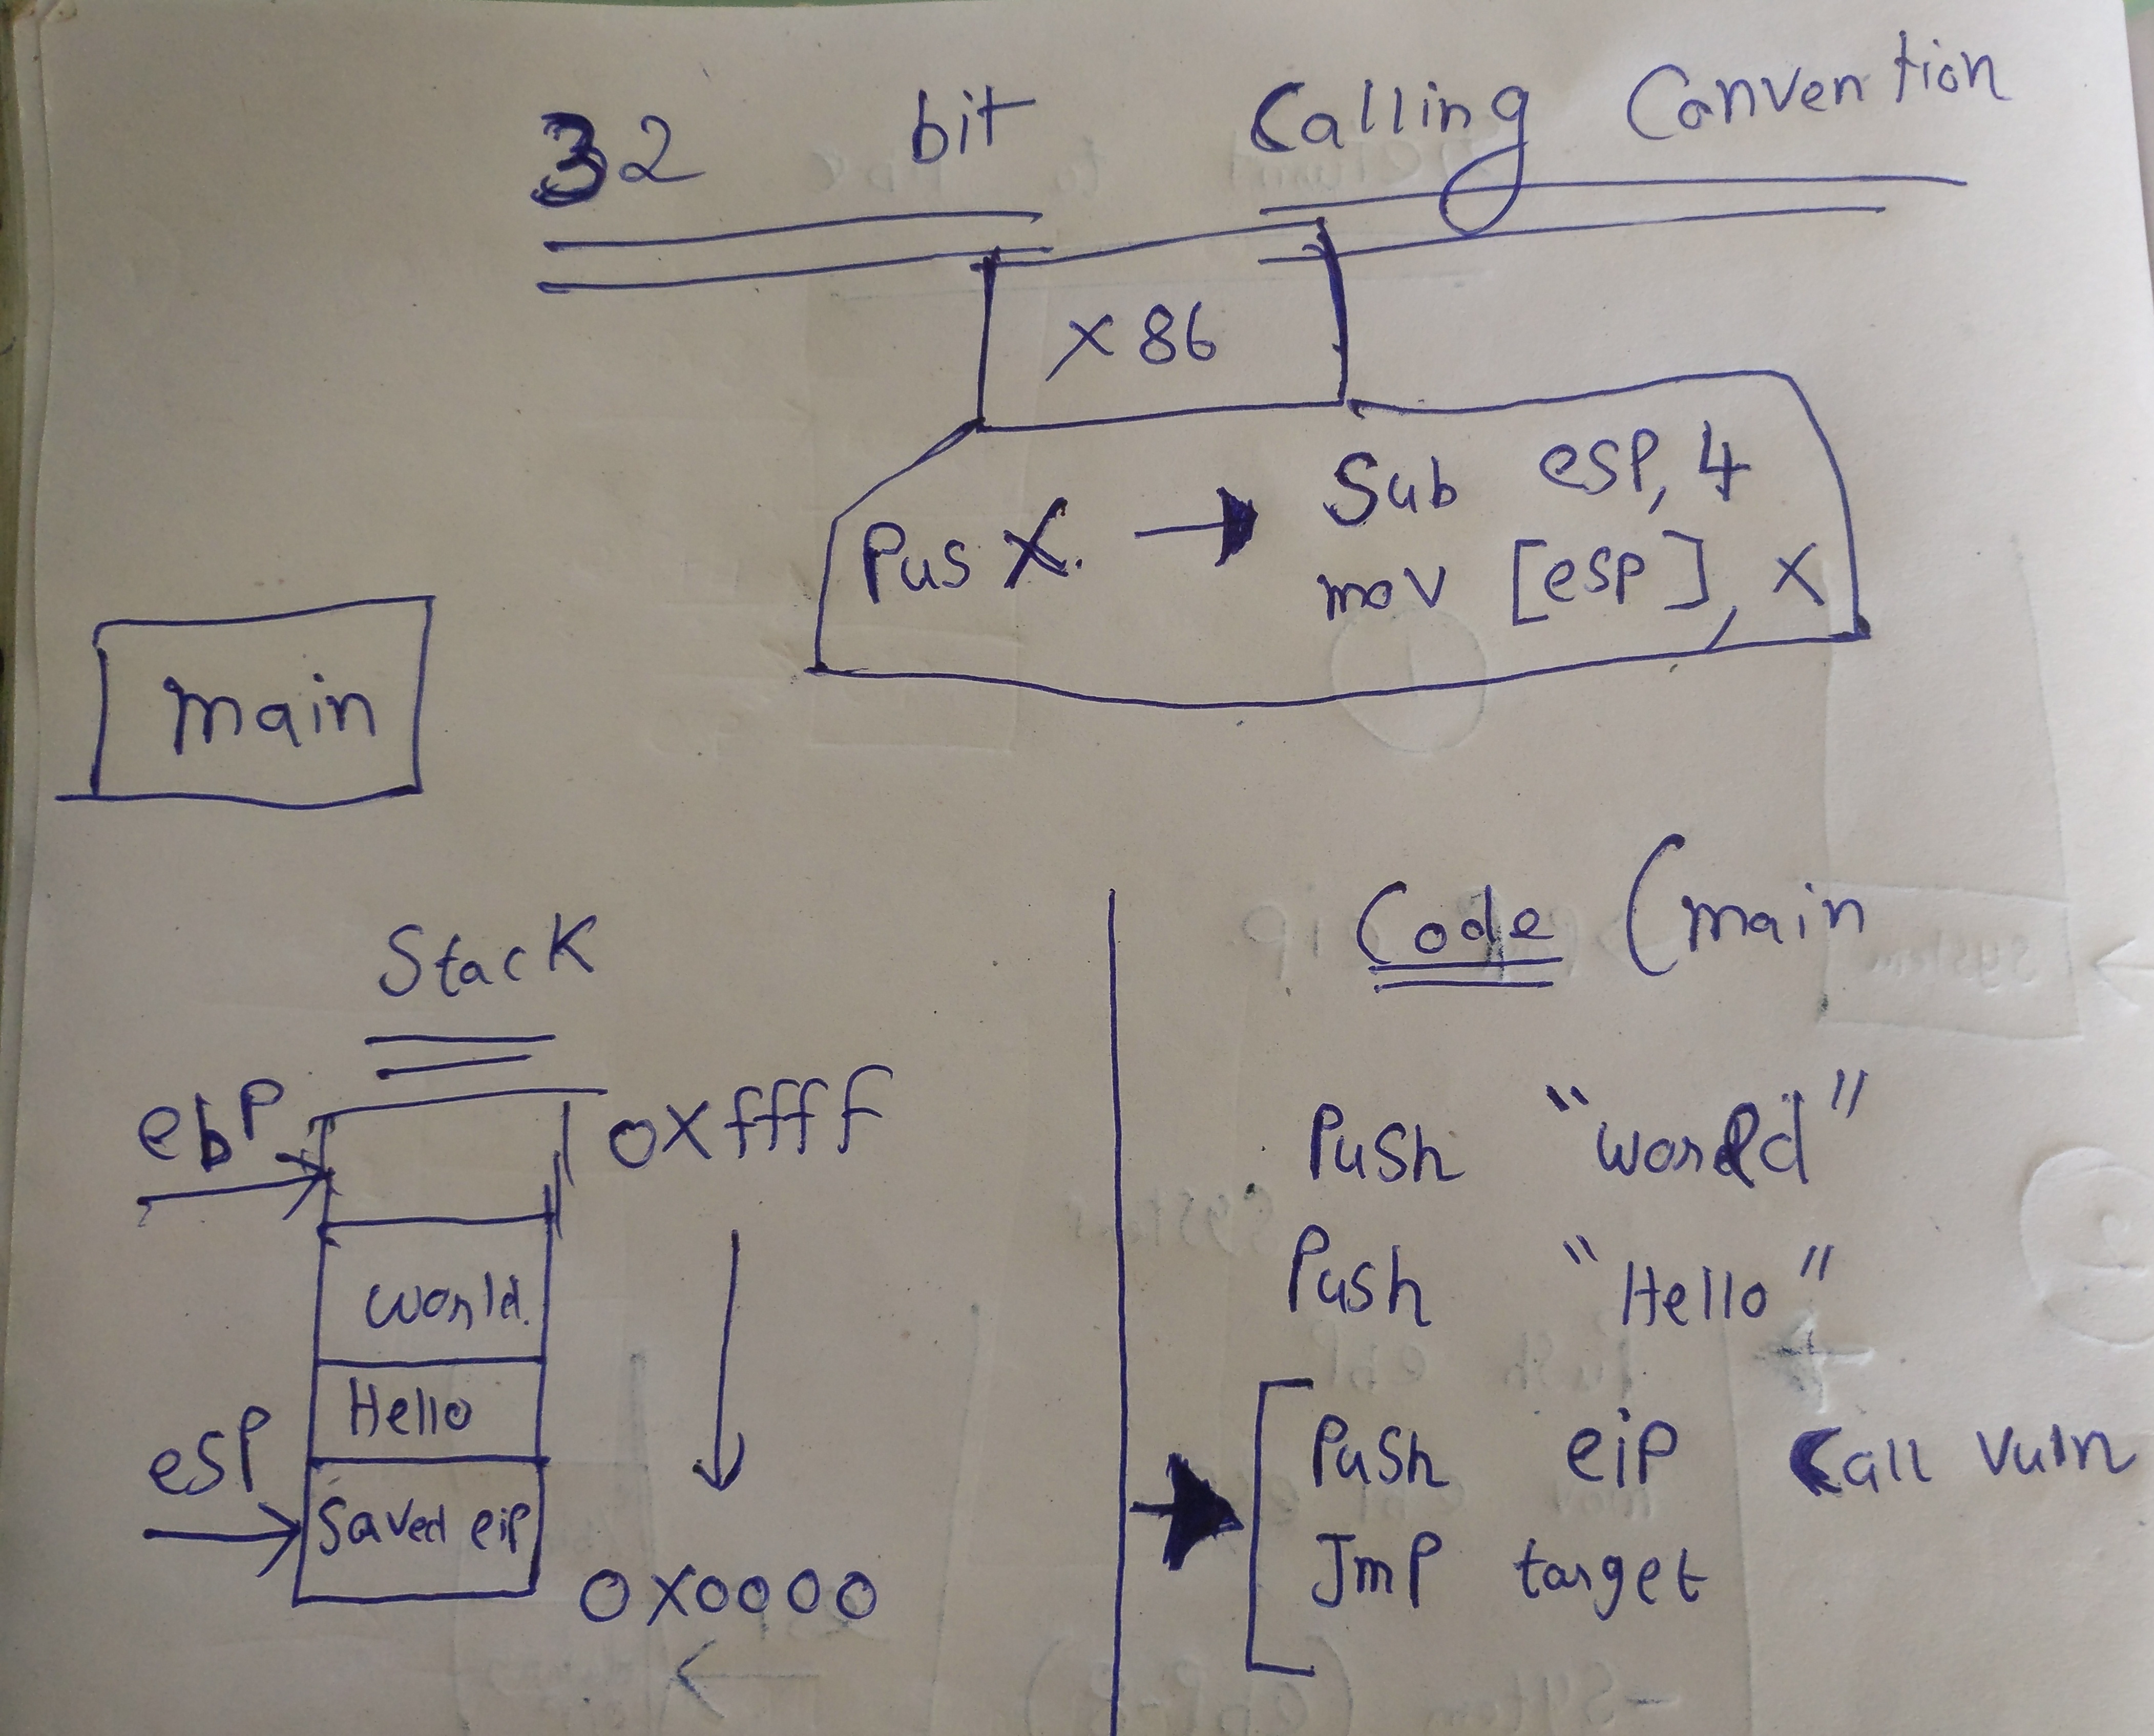 32 bit Calling Convention
x86
Pus X. → Sub esp, 4
mov [esp], X
main
Stack
ebp
0xffff
world.
Hello
esp
Saved eip
0x0000
Code (main
Push "world"
Push "Hello"
Push eip Call vuln
Jmp target